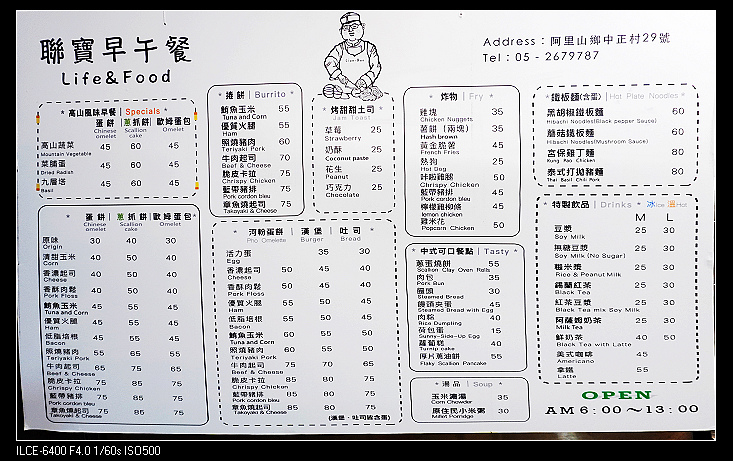 聯寶早午餐
Life&Food
Address：阿里山鄉中正村29號
Tel：05 - 2679787
* 高山風味早餐 | Specials *
蛋餅 蔥抓餅 歐姆蛋包
Chinese omelet Scallion cake Omelet
高山蔬菜 45 60 45
Mountain Vegetable
菜脯蛋 45 60 45
Dried Radish
九層塔 45 60 45
Basil
* 蛋餅 | 蔥抓餅 | 歐姆蛋包 *
Chinese omelet Scallion cake Omelet
原味 30 40 30
Origin
清甜玉米 40 50 40
Corn
香濃起司 40 50 40
Cheese
香酥肉鬆 40 50 40
Pork Floss
鮪魚玉米 45 55 45
Tuna and Corn
優質火腿 45 55 45
Ham
低脂培根 45 55 45
Bacon
照燒豬肉 55 65 55
Teriyaki Pork
牛肉起司 65 75 65
Beef & Cheese
脆皮卡拉 75 85 75
Chrispy Chicken
藍帶豬排 75 85 75
Pork cordon bleu
章魚燒起司 75 85 75
Takoyaki & Cheese
* 捲餅 | Burrito *
鮪魚玉米 55
Tuna and Corn
優質火腿 55
Ham
照燒豬肉 60
Teriyaki Pork
牛肉起司 70
Beef & Cheese
脆皮卡拉 75
Chrispy Chicken
藍帶豬排 75
Pork cordon bleu
章魚燒起司 75
Takoyaki & Cheese
* 烤甜甜土司 *
Jam Toast
草莓 25
Strawberry
奶酥 25
Coconut paste
花生 25
Peanut
巧克力 25
Chocolate
* 河粉蛋餅 | 漢堡 | 吐司 *
Pho Omelette Burger Bread
活力蛋 35 30
Egg
香濃起司 50 45 40
Cheese
香酥肉鬆 50 45 40
Pork Floss
優質火腿 55 50 45
Ham
低脂培根 55 50 45
Bacon
鮪魚玉米 60 55 50
Tuna and Corn
照燒豬肉 60 55 50
Teriyaki Pork
牛肉起司 75 70 65
Beef & Cheese
脆皮卡拉 85 80 75
Chrispy Chicken
藍帶豬排 85 80 75
Pork cordon bleu
章魚燒起司 85 80 75
Takoyaki & Cheese
(漢堡、吐司皆含蛋)
* 炸物 | Fry *
雞塊 35
Chicken Nuggets
薯餅（兩塊） 35
Hash brown
黃金脆薯 45
French Fries
熱狗 25
Hot Dog
咔啦雞腿 50
Chrispy Chicken
藍帶豬排 45
Pork cordon bleu
檸檬雞柳條 45
lemon chicken
雞米花 50
Popcorn Chicken
* 中式可口餐點 | Tasty *
蔥蛋燒餅 55
Scallion Clay Oven Rolls
肉包 35
Pork Bun
饅頭 30
Steamed Bread
饅頭夾蛋 45
Steamed Bread with Egg
肉粽 40
Rice Dumpling
荷包蛋 15
Sunny-Side-Up Egg
蘿蔔糕 40
Turnip cake
厚片蔥油餅 55
Flaky Scallion Pancake
* 湯品 | Soup *
玉米濃湯 35
Corn Chowder
原住民小米粥 30
Millet Porridge
* 鐵板麵(含蛋) | Hot Plate Noodles *
黑胡椒鐵板麵 60
Hibachi Noodles(Black pepper Sauce)
蘑菇鐵板麵 60
Hibachi Noodles(Mushroom Sauce)
宮保雞丁麵 80
Kung Pao Chicken
泰式打拋豬麵 80
Thai Basil Chili Pork
* 特製飲品 | Drinks * 冰Ice 溫Hot
M L
豆漿 25 30
Soy Milk
無糖豆漿 25 30
Soy Milk (No Sugar)
糙米漿 25 30
Rice & Peanut Milk
錫蘭紅茶 25 30
Black Tea
紅茶豆漿 25 30
Black Tea mix Soy Milk
阿薩姆奶茶 25 30
Milk Tea
鮮奶茶 40 50
Black Tea with Latte
美式咖啡 45
Americano
拿鐵 55
Latte
OPEN
AM 6：00～13：00
ILCE-6400 F4.0 1/60s ISO500